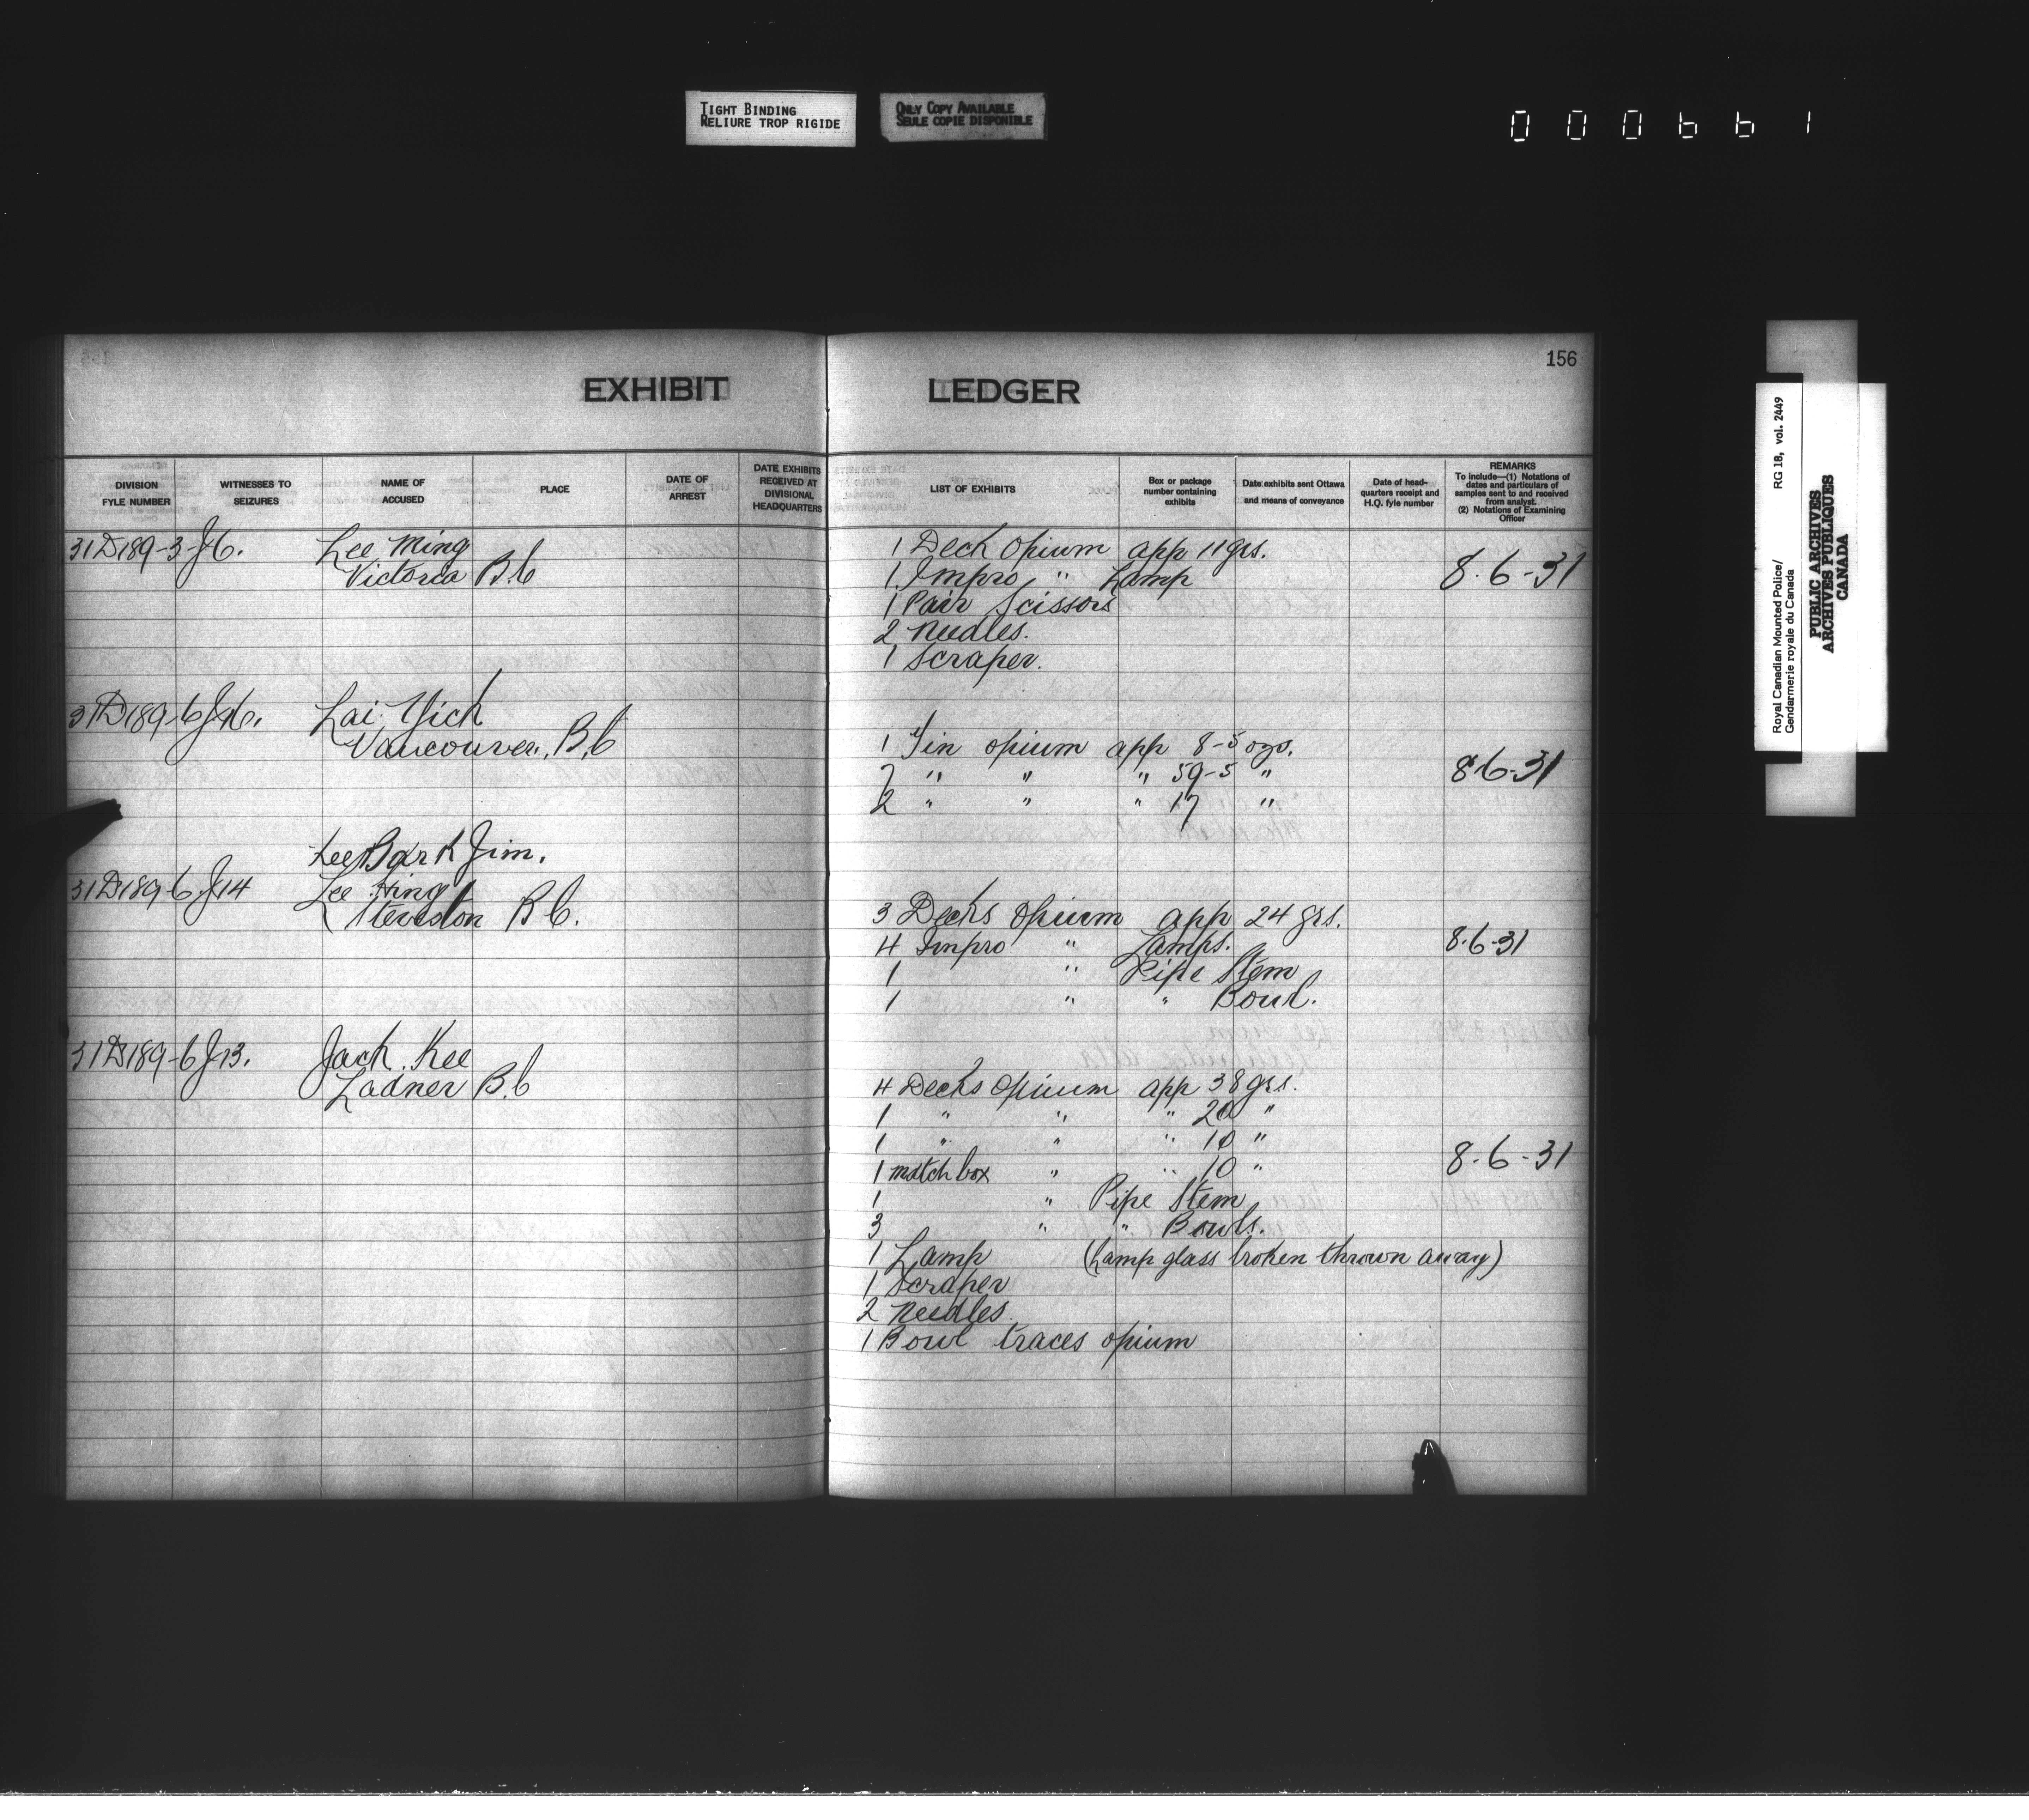 TIGHT BINDING
RELIURE TROP RIGIDE
ONLY COPY AVAILABLE
SEULE COPIE DISPONIBLE
000661
156
EXHIBIT LEDGER
DIVISION FYLE NUMBER
WITNESSES TO SEIZURES
NAME OF ACCUSED
PLACE
DATE OF ARREST
DATE EXHIBITS RECEIVED AT DIVISIONAL HEADQUARTERS
LIST OF EXHIBITS
Box or package number containing exhibits
Date exhibits sent Ottawa and means of conveyance
Date of head-quarters receipt and H.Q. fyle number
REMARKS
To include—(1) Notations of dates and particulars of samples sent to and received from analyst.
(2) Notations of Examining Officer
31D189-3-J6. Lee Ming
Victoria B.C
1 Deck opium app 11 grs.
1 Impro " Lamp 8-6-31
1 Pair Scissors
2 needles.
1 Scraper.
31D189-6 J16. Lai Yick
Vancouver, B.C
1 Tin opium app 8-5 ozs.
7 " " " 59-5 " 8-6-31
2 " " " 17 "
Lee Bark Jim.
31D189-6 J14 Lee Hing
Steveston B.C.
3 Decks opium app 24 grs.
4 Impro " Lamps. 8-6-31
1 " Pipe Stem
1 " " Bowl.
31D189-6 J13. Jack Kee
Ladner B.C
4 Decks opium app 38 grs.
1 " " " 20 "
1 " " " 10 "
1 match box " " 10 " 8-6-31
1 " Pipe Stem
3 " " Bowls.
1 Lamp (Lamp glass broken thrown away)
1 Scraper
2 needles.
1 Bowl traces opium
Royal Canadian Mounted Police/
Gendarmerie royale du Canada
RG 18, vol. 2449
PUBLIC ARCHIVES
ARCHIVES PUBLIQUES
CANADA